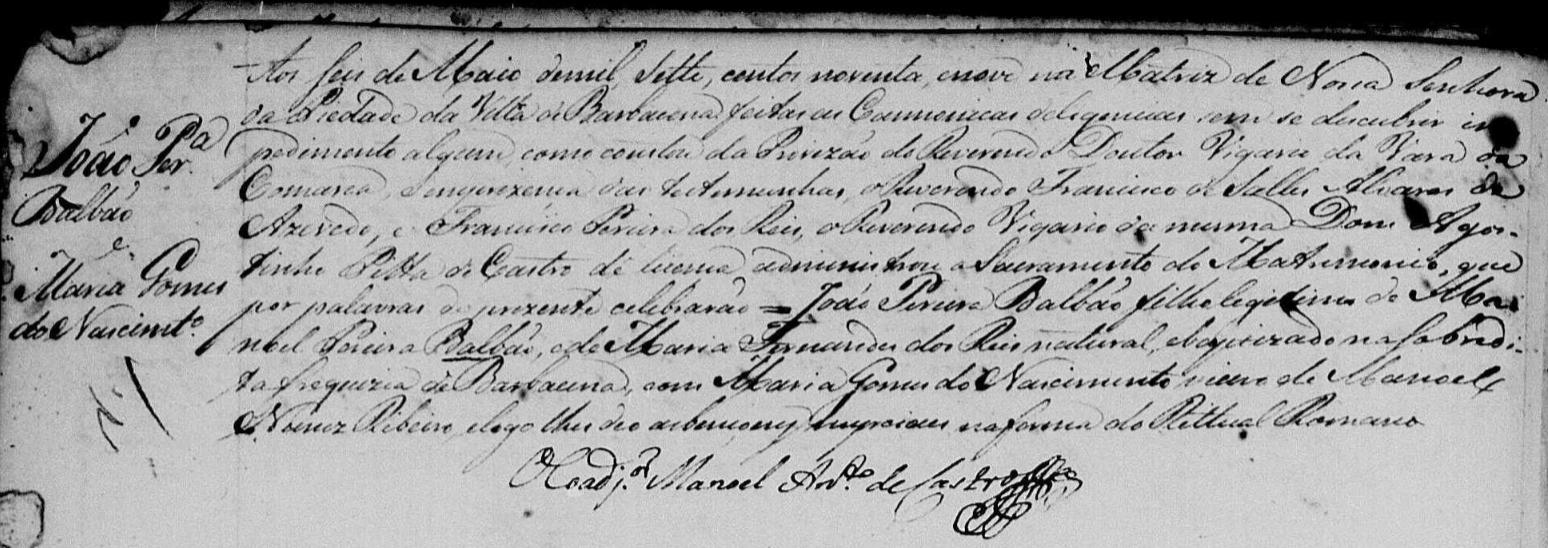 João Per.ª
Balbão
e
Maria Gomes
do Nascimt.º
Aos seis de Maio demil, Sette, centos noventa, enove na Matriz de Nossa Senhora
da Piedade da Villa de Barbacena, feitas as Cannonicas deligencias sem se descubrir im
pedimento algum, como consta da Provizão do Reverendo Doutor Vigario da Vara da
Comarca, e em prezença das testemunhas, o Reverendo Francisco de Salles Alvares de
Azevedo, e Francisco Pereira dos Reis, o Reverendo Vigario da mesma Dom Agos-
tinho Pitta de Castro de licença administrou o Sacramento do Matrimonio, que
por palavras de prezente celebrarão = João Pereira Balbão filho legitimo de Ma
noel Pereira Balbão, e de Maria Fernandes dos Reis natural, ebaptizado na Sobredi-
ta freguezia de Barbacena, com Maria Gomes do Nascimento viuva de Manoel
Nunez Ribeiro, elogo lhes deo as bençoens nupciaes na forma do Rittual Romano
O Coadj.or Manoel Ant.º de Castro